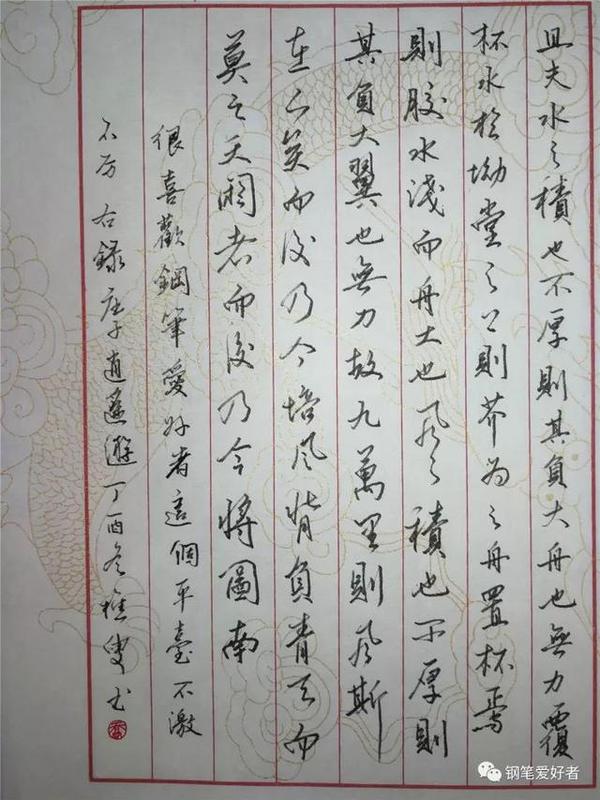 且夫水之積也不厚則其負大舟也無力覆
杯水於坳堂之上則芥為之舟置杯焉
則膠水淺而舟大也風之積也不厚則
其負大翼也無力故九萬里則風斯
在下矣而後乃今培風背負青天而
莫之夭閼者而後乃今將圖南
很喜歡鋼筆愛好者這個平臺不激
不厉 右錄庄子逍遙遊丁酉冬叟书
钢笔爱好者